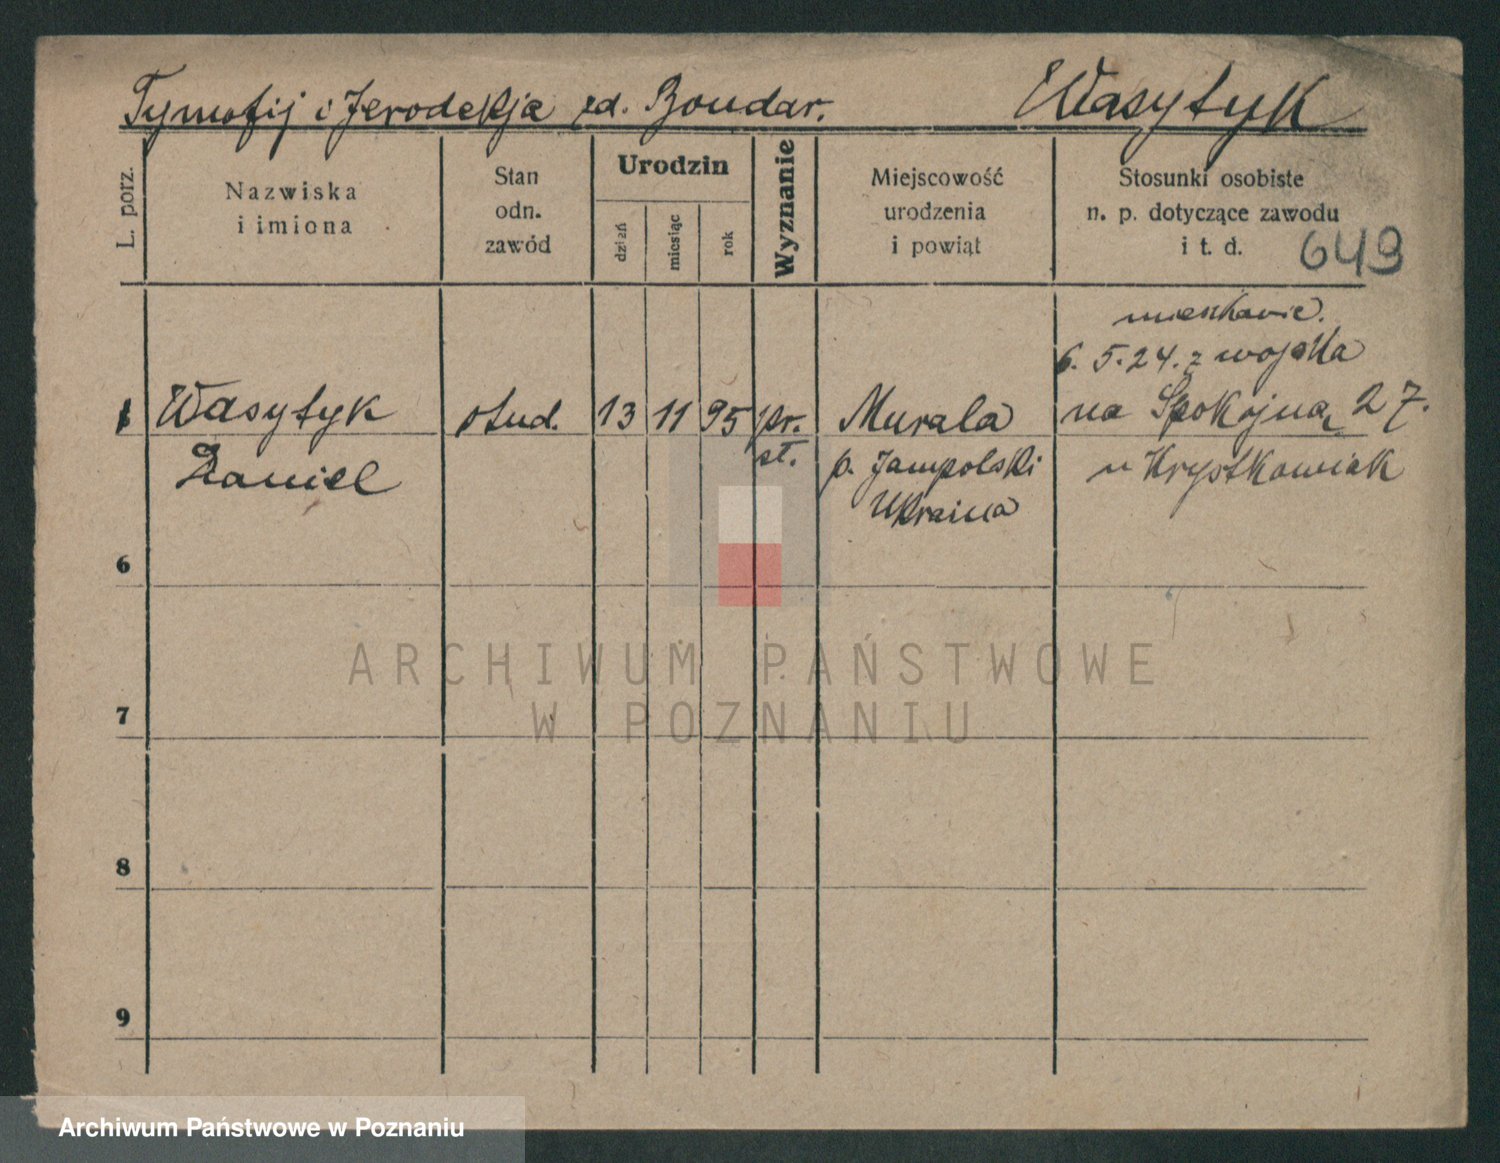 Tymofij i Jerodekja zd. Bondar. Wasytyk
L. porz.
Nazwiska
i imiona
Stan
odn.
zawód
Urodzin
dzień
miesiąc
rok
Wyznanie
Miejscowość
urodzenia
i powiąt
Stosunki osobiste
n. p. dotyczące zawodu
i t. d.
649
6. 5. 24. z wojska
1 Wasytyk stud. 13 11 95 pr. Murala na Spokojną 27.
Daniel st. p. Jampolski u Krystkowiak
Ukraina
6
7
8
9
ARCHIWUM PAŃSTWOWE
W POZNANIU
Archiwum Państwowe w Poznaniu